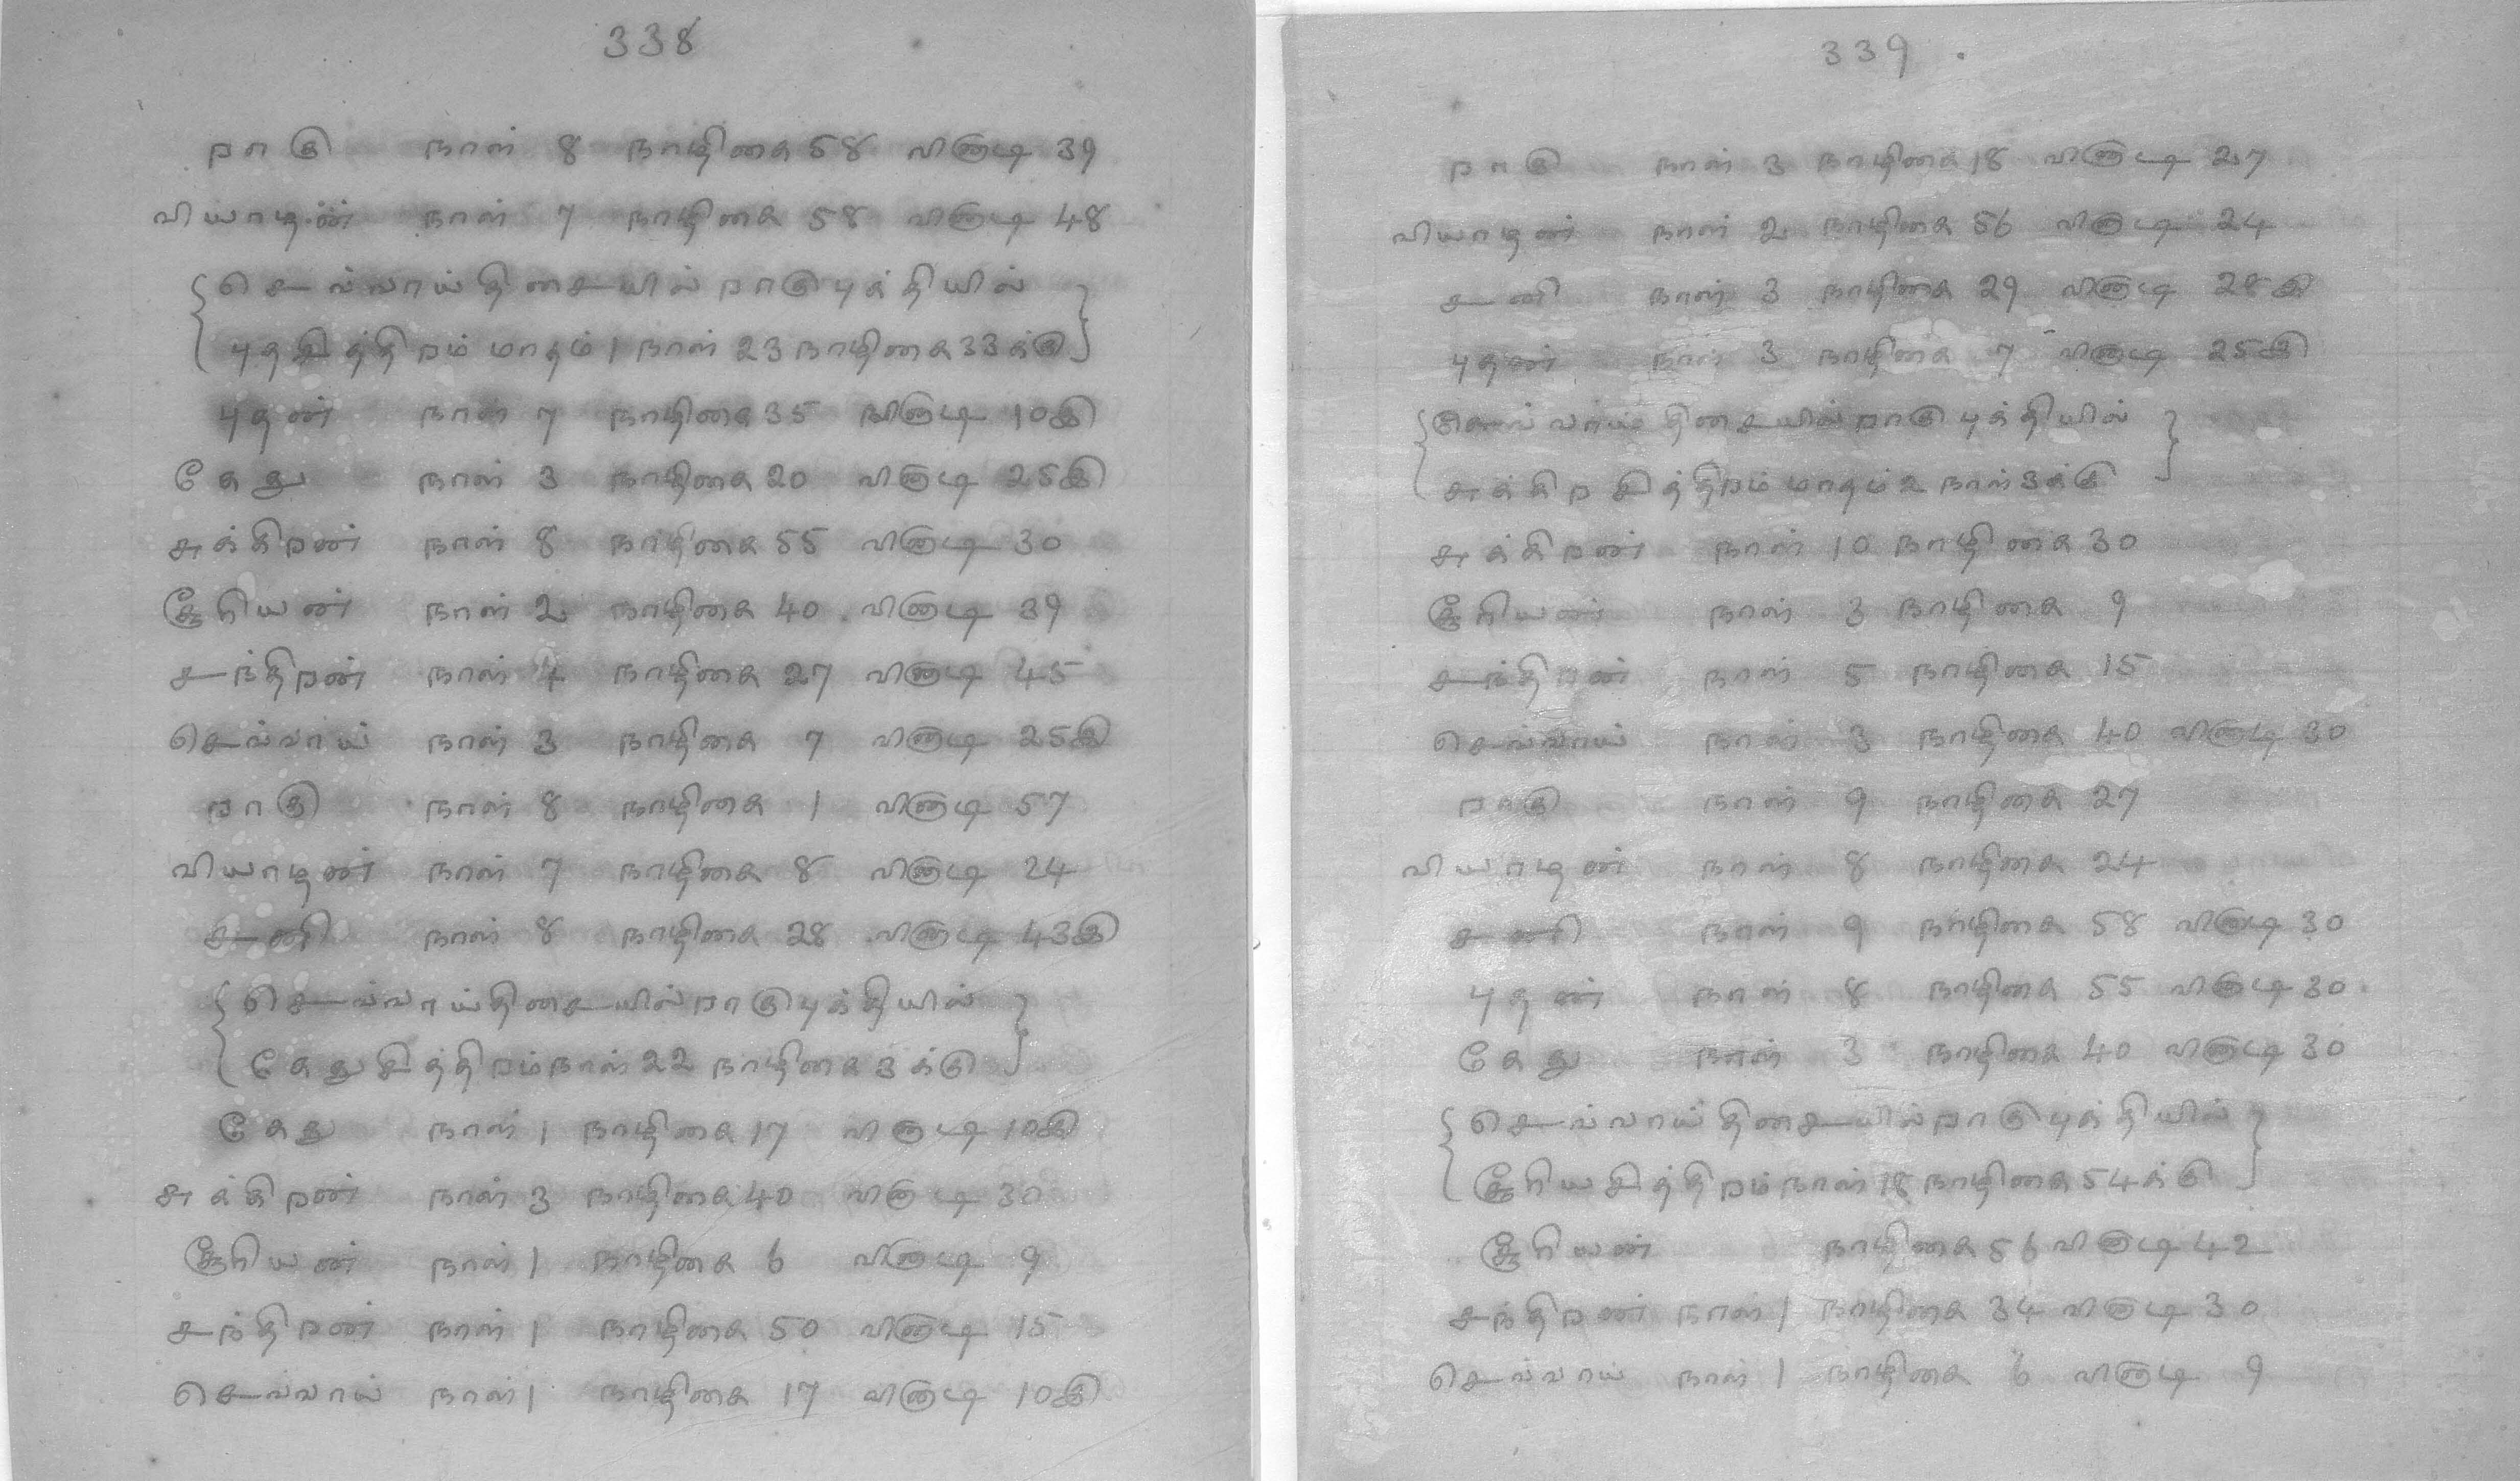 338
றாகு நாள் 8 நாழிகை 58 விநாடி 39
வியாழன் நாள் 7 நாழிகை 58 விநாடி 48
{ செவ்வாய்திசையில் றாகு புக்தியில்
புதசித்திறம் மாதம் 1 நாள் 23 நாழிகை 33க்கு }
புதன் நாள் 7 நாழிகை 35 விநாடி 10இ
கேது நாள் 3 நாழிகை 20 விநாடி 25இ
சுக்கிறன் நாள் 8 நாழிகை 55 விநாடி 30
சூரியன் நாள் 2 நாழிகை 40 விநாடி 39
சந்திறன் நாள் 4 நாழிகை 27 விநாடி 45
செவ்வாய் நாள் 3 நாழிகை 7 விநாடி 25இ
றாகு நாள் 8 நாழிகை 1 விநாடி 57
வியாழன் நாள் 7 நாழிகை 8 விநாடி 24
சனி நாள் 8 நாழிகை 28 விநாடி 43இ
{ செவ்வாய்திசையில் றாகு புக்தியில்
கேதுசித்திறம் நாள் 22 நாழிகை 3க்கு }
கேது நாள் 1 நாழிகை 17 விநாடி 10இ
சுக்கிறன் நாள் 3 நாழிகை 40 விநாடி 30
சூரியன் நாள் 1 நாழிகை 6 விநாடி 9
சந்திறன் நாள் 1 நாழிகை 50 விநாடி 15
செவ்வாய் நாள் 1 நாழிகை 17 விநாடி 10இ
339
றாகு நாள் 3 நாழிகை 18 விநாடி 27
வியாழன் நாள் 2 நாழிகை 56 விநாடி 24
சனி நாள் 3 நாழிகை 29 விநாடி 28இ
புதன் நாள் 3 நாழிகை 7 விநாடி 25இ
{ செவ்வாய் திசையில் றாகு புக்தியில்
சுக்கிறசித்திறம் மாதம் 2 நாள் 3க்கு }
சுக்கிறன் நாள் 10 நாழிகை 30
சூரியன் நாள் 3 நாழிகை 9
சந்திறன் நாள் 5 நாழிகை 15
செவ்வாய் நாள் 3 நாழிகை 40 விநாடி 30
றாகு நாள் 9 நாழிகை 27
வியாழன் நாள் 8 நாழிகை 24
சனி நாள் 9 நாழிகை 58 விநாடி 30
புதன் நாள் 8 நாழிகை 55 விநாடி 30
கேது நாள் 3 நாழிகை 40 விநாடி 30
{ செவ்வாய் திசையில் றாகு புக்தியில்
சூரியசித்திறம் நாள் 18 நாழிகை 54க்கு }
சூரியன் நாழிகை 56 விநாடி 42
சந்திறன் நாள் 1 நாழிகை 34 விநாடி 30
செவ்வாய் நாள் 1 நாழிகை 6 விநாடி 9